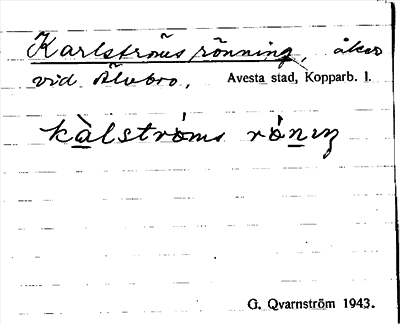 Karlströms rönning, åker
vid Älvbro, Avesta stad, Kopparb. l.
kàlstróms róning
G. Qvarnström 1943.